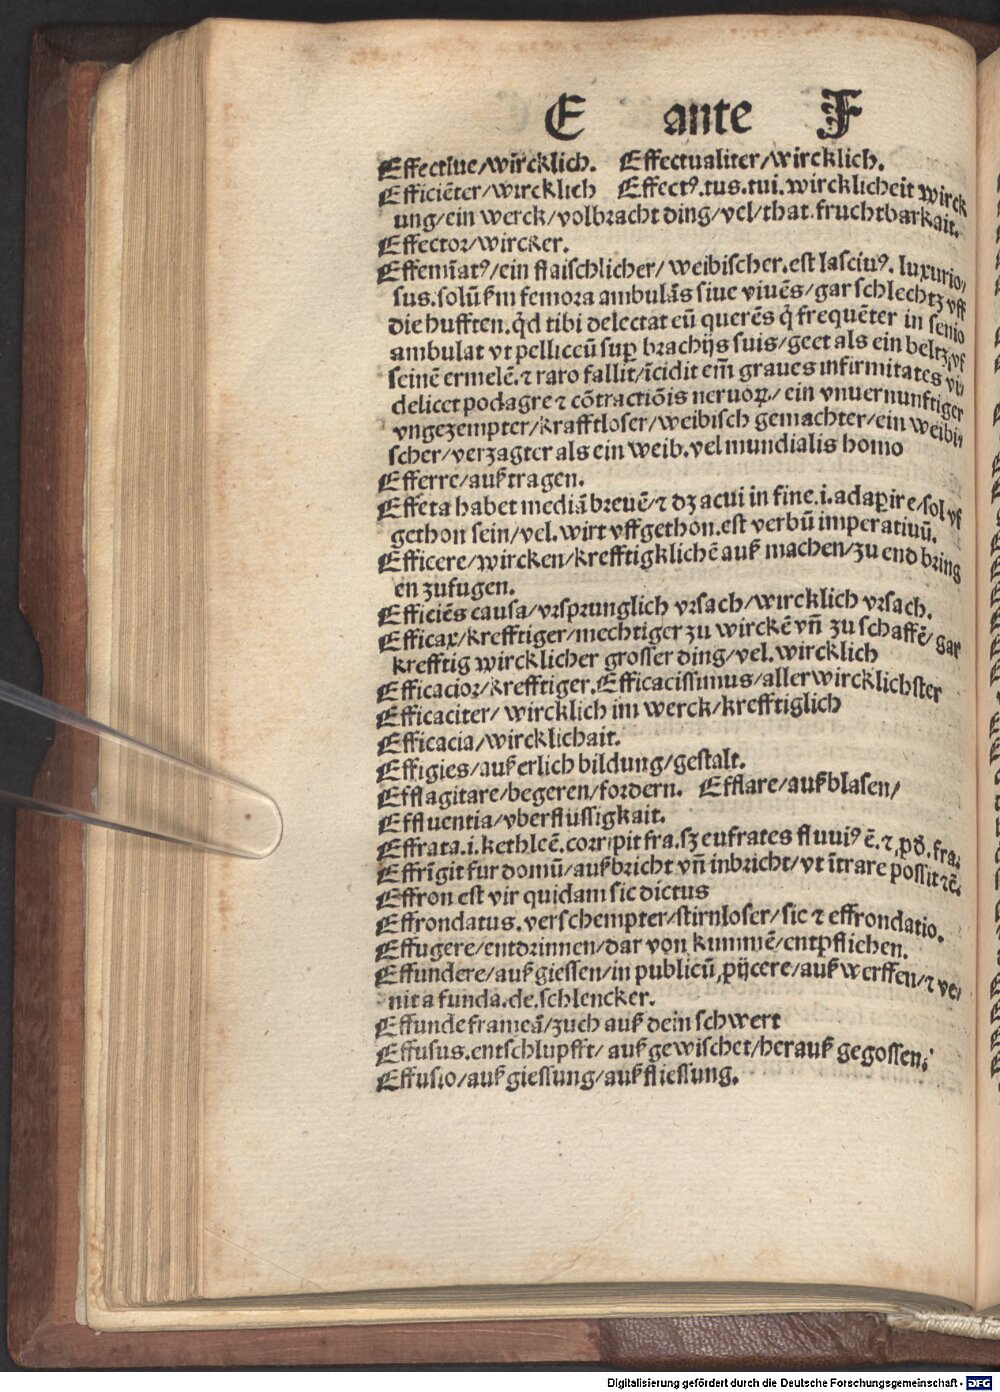 E ante F
Effectiue/wircklich. Effectualiter/wircklich.
Efficiēter/wircklich Effectꝰ.tus.tui.wircklicheit wirck
ung/ein werck/volbracht ding/vel/that.fruchtbarkait.
Effector/wircker.
Effemīatꝰ/ein flaischlicher/weibischer.est lasciuꝰ.luxurio/
sus.solū ſm femora ambulās siue viuēs/gar schlechtz vff
die hufften.q̇d tibi delectat eū querēs q̇ frequēter in senio
ambulat vt pelliceū suꝑ brachijs suis/geet als ein beltz vf
seinē ermelē.⁊ raro fallit/īcidit em̄ graues infirmitates vi/
delicet podagre ⁊ cōtractiōis neruoꝝ/ein vnuernunftiger
vngezempter/krafftloser/weibisch gemachter/ein weibi/
scher/verzagter als ein weib.vel mundialis homo
Efferre/auß tragen.
Effeta habet mediā breuē/⁊ dꝫ acui in fine.i.adaꝑire/sol vf
gethon sein/vel.wirt vffgethon.est verbū imperatiuū.
Efficere/wircken/krefftigklichē auß machen/zu end bring
en zufugen.
Efficiēs causa/vrsprunglich vrsach/wircklich vrsach.
Efficax/krefftiger/mechtiger zu wirckē vn̄ zu schaffē/gar
krefftig wircklicher grosser ding/vel.wircklich
Efficacior/krefftiger.Efficacissimus/allerwircklichster
Efficaciter/wircklich im werck/krefftiglich
Efficacia/wircklichait.
Effigies/außerlich bildung/gestalt.
Efflagitare/begeren/fordern. Efflare/außblasen/
Effluentia/vberflussigkait.
Effrata.i.bethleē.corripit fra.sꝫ eufrates fluuiꝰ ē.⁊ ꝓd.fra.
Effrīgit fur domū/außbricht vn̄ inbricht/vt ītrare possit ⁊ē.
Effron est vir quidam sic dictus
Effrondatus.verschempter/stirnloser/sic ⁊ effrondatio.
Effugere/entdrinnen/dar von kummē/entpfliehen.
Effundere/auß giessen/in publicū ꝓijcere/auß werffen/⁊ ve/
nit a funda.de.schlencker.
Effunde frameā/zuch auß dein schwert
Effusus.entschlupfft/auß gewischet/herauß gegossen.
Effusio/auß giessung/auß fliessung.
Digitalisierung gefördert durch die Deutsche Forschungsgemeinschaft - DFG